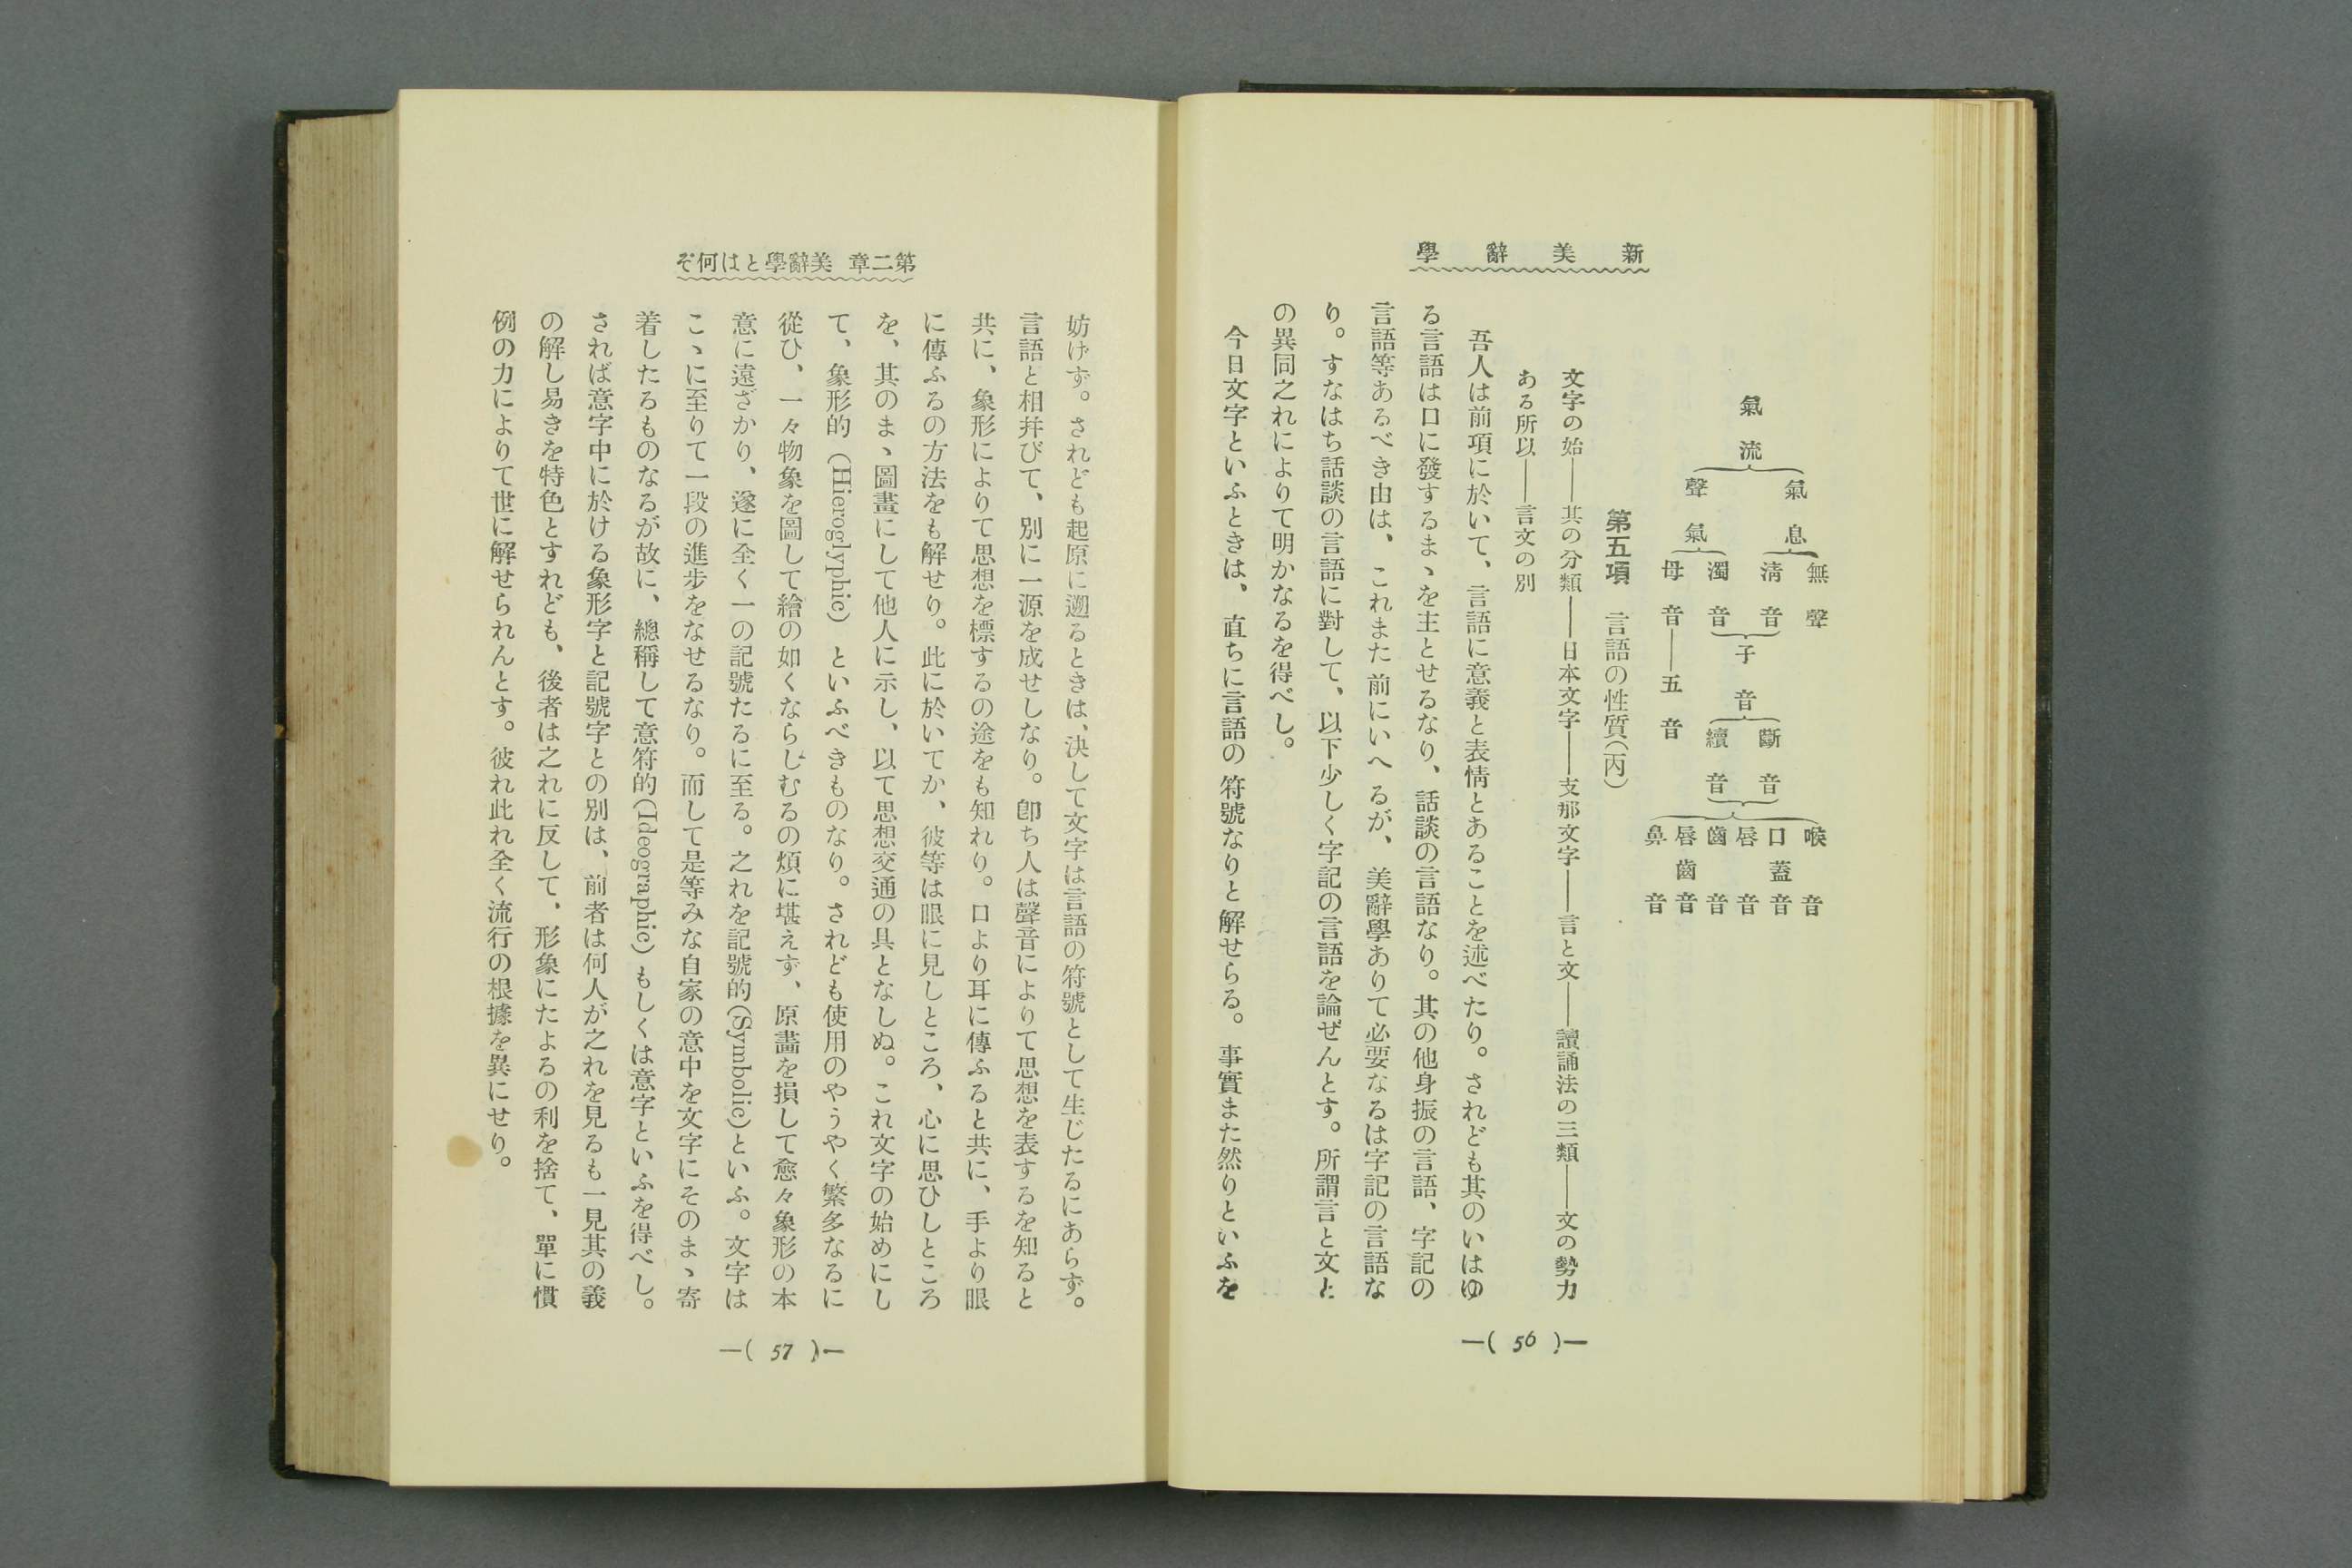 新美辭學
氣流
氣息
聲氣
無聲
清音
濁音
母音――五音
子音
斷音
續音
喉音
口蓋音
唇音
齒音
唇齒音
鼻音
第五項　言語の性質(丙)
文字の始――其の分類――日本文字――支那文字――言と文――讀誦法の三類――文の勢力
ある所以――言文の別
吾人は前項に於いて、言語に意義と表情とあることを述べたり。されども其のいはゆ
る言語は口に發するまヽを主とせるなり、話談の言語なり。其の他身振の言語、字記の
言語等あるべき由は、これまた前にいへるが、美辭學ありて必要なるは字記の言語な
り。すなはち話談の言語に對して、以下少しく字記の言語を論ぜんとす。所謂言と文と
の異同之れによりて明かなるを得べし。
今日文字といふときは、直ちに言語の符號なりと解せらる。事實また然りといふを
―( 56 )―
第二章 美辭學とは何ぞ
妨げず。されども起原に遡るときは、決して文字は言語の符號として生じたるにあらず。
言語と相幷びて、別に一源を成せしなり。卽ち人は聲音によりて思想を表するを知ると
共に、象形によりて思想を標するの途をも知れり。口より耳に傳ふると共に、手より眼
に傳ふるの方法をも解せり。此に於いてか、彼等は眼に見しところ、心に思ひしところ
を、其のまヽ圖畫にして他人に示し、以て思想交通の具となしぬ。これ文字の始めにし
て、象形的(Hieroglyphic)といふべきものなり。されども使用のやうやく繁多なるに
從ひ、一々物象を圖して繪の如くならしむるの煩に堪えず、原畵を損して愈々象形の本
意に遠ざかり、遂に全く一の記號たるに至る。之れを記號的(Symbolic)といふ。文字は
こヽに至りて一段の進步をなせるなり。而して是等みな自家の意中を文字にそのまヽ寄
着したるものなるが故に、總稱して意符的(Ideographic)もしくは意字といふを得べし。
されば意字中に於ける象形字と記號字との別は、前者は何人が之れを見るも一見其の義
の解し易きを特色とすれども、後者は之れに反して、形象にたよるの利を捨て、單に慣
例の力によりて世に解せられんとす。彼れ此れ全く流行の根據を異にせり。
―( 57 )―